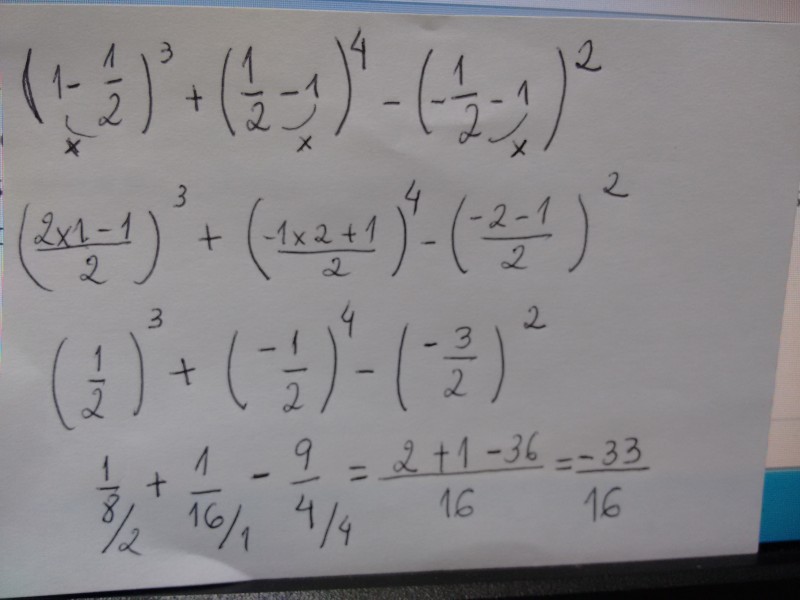 (1 - 1/2)³ + (1/2 - 1)⁴ - (-1/2 - 1)²
x x x
((2x1-1)/2)³ + ((-1x2+1)/2)⁴ - ((-2-1)/2)²
(1/2)³ + (-1/2)⁴ - (-3/2)²
1/8/2 + 1/16/1 - 9/4/4 = (2+1-36)/16 = -33/16